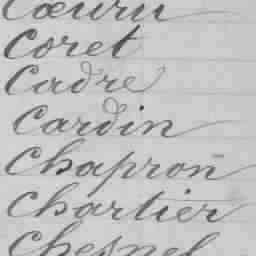 Cœuru
Coret
Cadre
Cardin
Chapron
Chartier
Chesnel